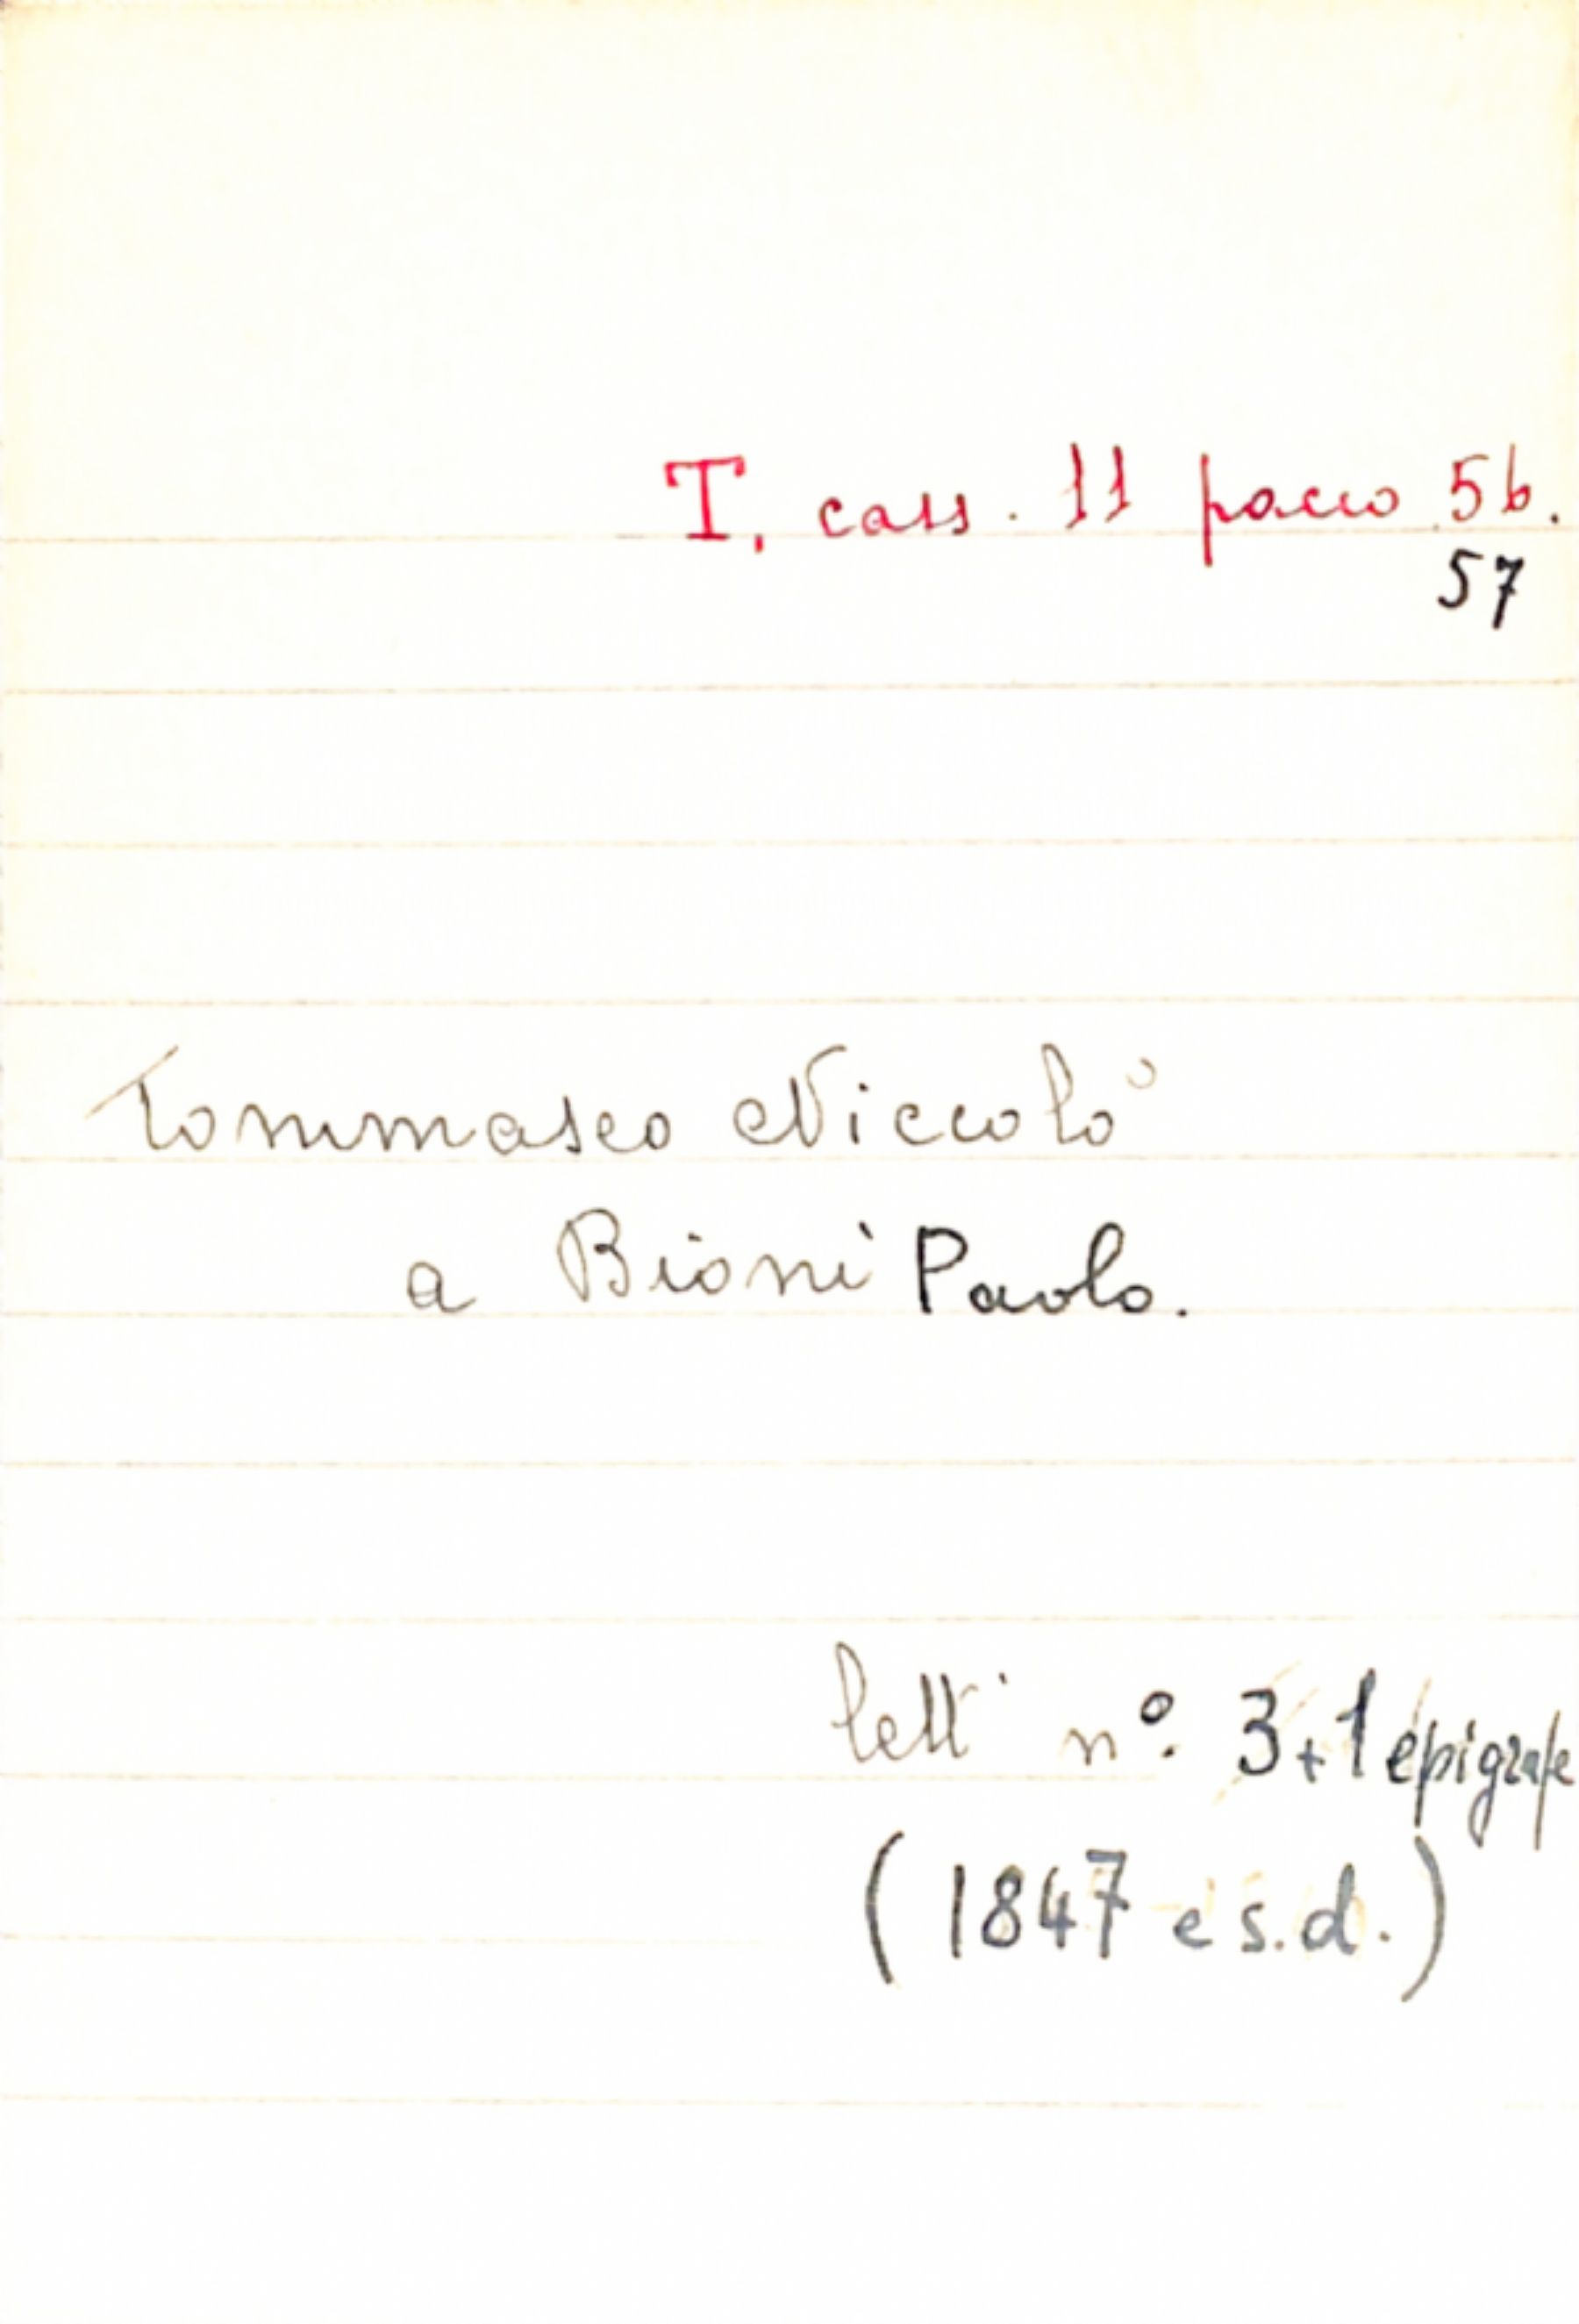 T, cass. 11 pacco 56.
57
Tommaseo Niccolò
a Bioni Paolo.
lett. nº. 3+1 epigrafe
(1847 e s.d.)